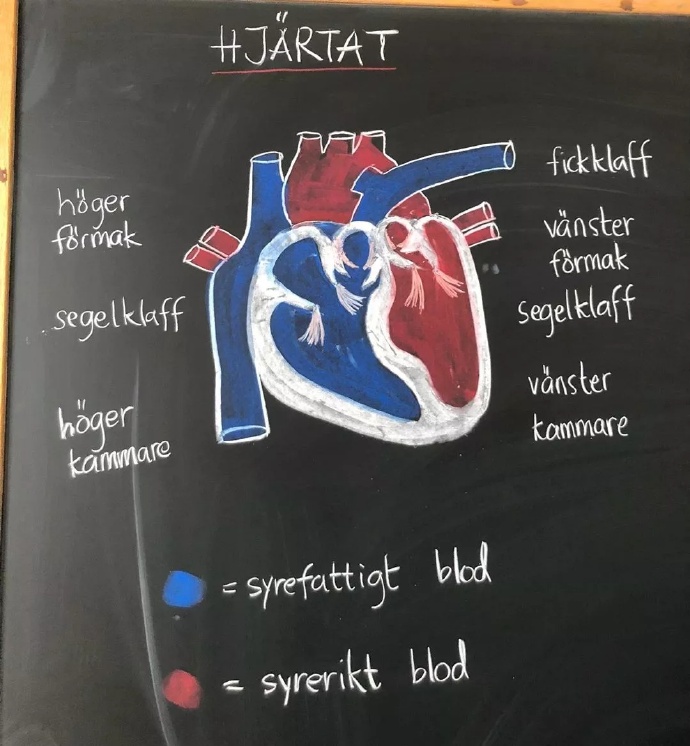 HJÄRTAT
höger
förmak
segelklaff
höger
kammare
fickklaff
vänster
förmak
segelklaff
vänster
kammare
= syrefattigt blod
= syrerikt blod